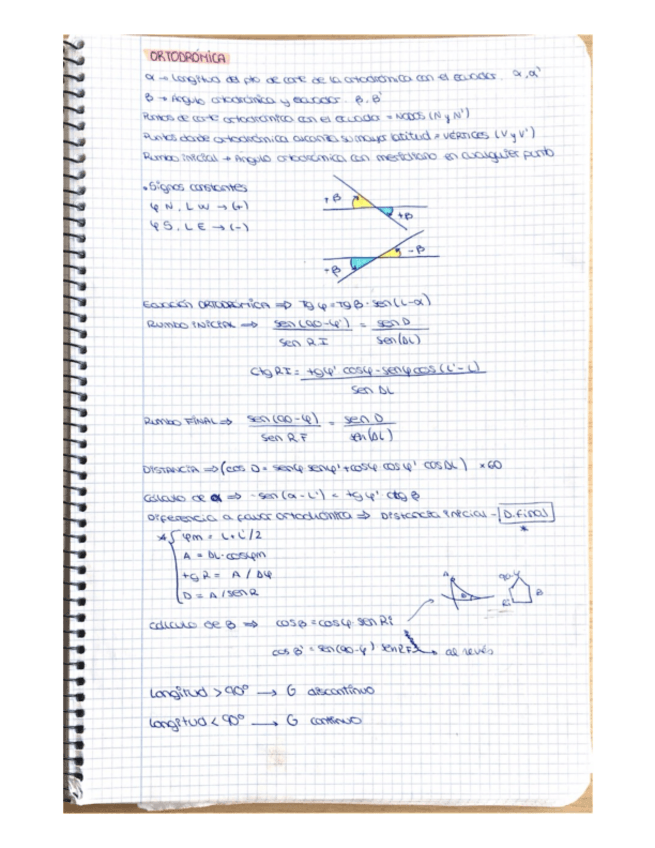 ORTODRÓMICA
α → Longitud del pto de corte de la ortodrómica con el ecuador. α, α'
β → Angulo ortodrómica y ecuador. β, β'
Puntos de corte ortodrómica con el ecuador = NODOS (N y N')
Puntos donde ortodrómica alcanza su mayor latitud = VÉRTICES (V y V')
Rumbo inicial → Angulo ortodrómica con meridiano en cualquier punto
• Signos constantes
φ N, L W → (+)
φ S, L E → (-)
+β
+β
-β
-β
Ecuación ORTODRÓMICA ⇒ Tg φ = Tg β · sen (L-α)
RUMBO INICIAL ⇒ sen (90-φ') / sen RI = sen D / sen (ΔL)
Ctg RI = tg φ' cos φ - sen φ cos (L'-L) / sen ΔL
RUMBO FINAL ⇒ sen (90-φ) / sen RF = sen D / sen (ΔL)
DISTANCIA ⇒ (cos D = sen φ sen φ' + cos φ cos φ' cos ΔL) × 60
Cálculo de α ⇒ - sen (α - L') = tg φ' ctg β
Diferencia a favor ortodrómica ⇒ Distancia inicial - D. final
*
* φm = L + L'/2
A = ΔL · cos φm
tg R = A / Δφ
D = A / sen R
A
90-φ
B
Cálculo de β ⇒ cos β = cos φ · sen Ri
cos β' = sen (90-φ') sen RF → al revés
Longitud > 90° → G discontinuo
Longitud < 90° → G continuo